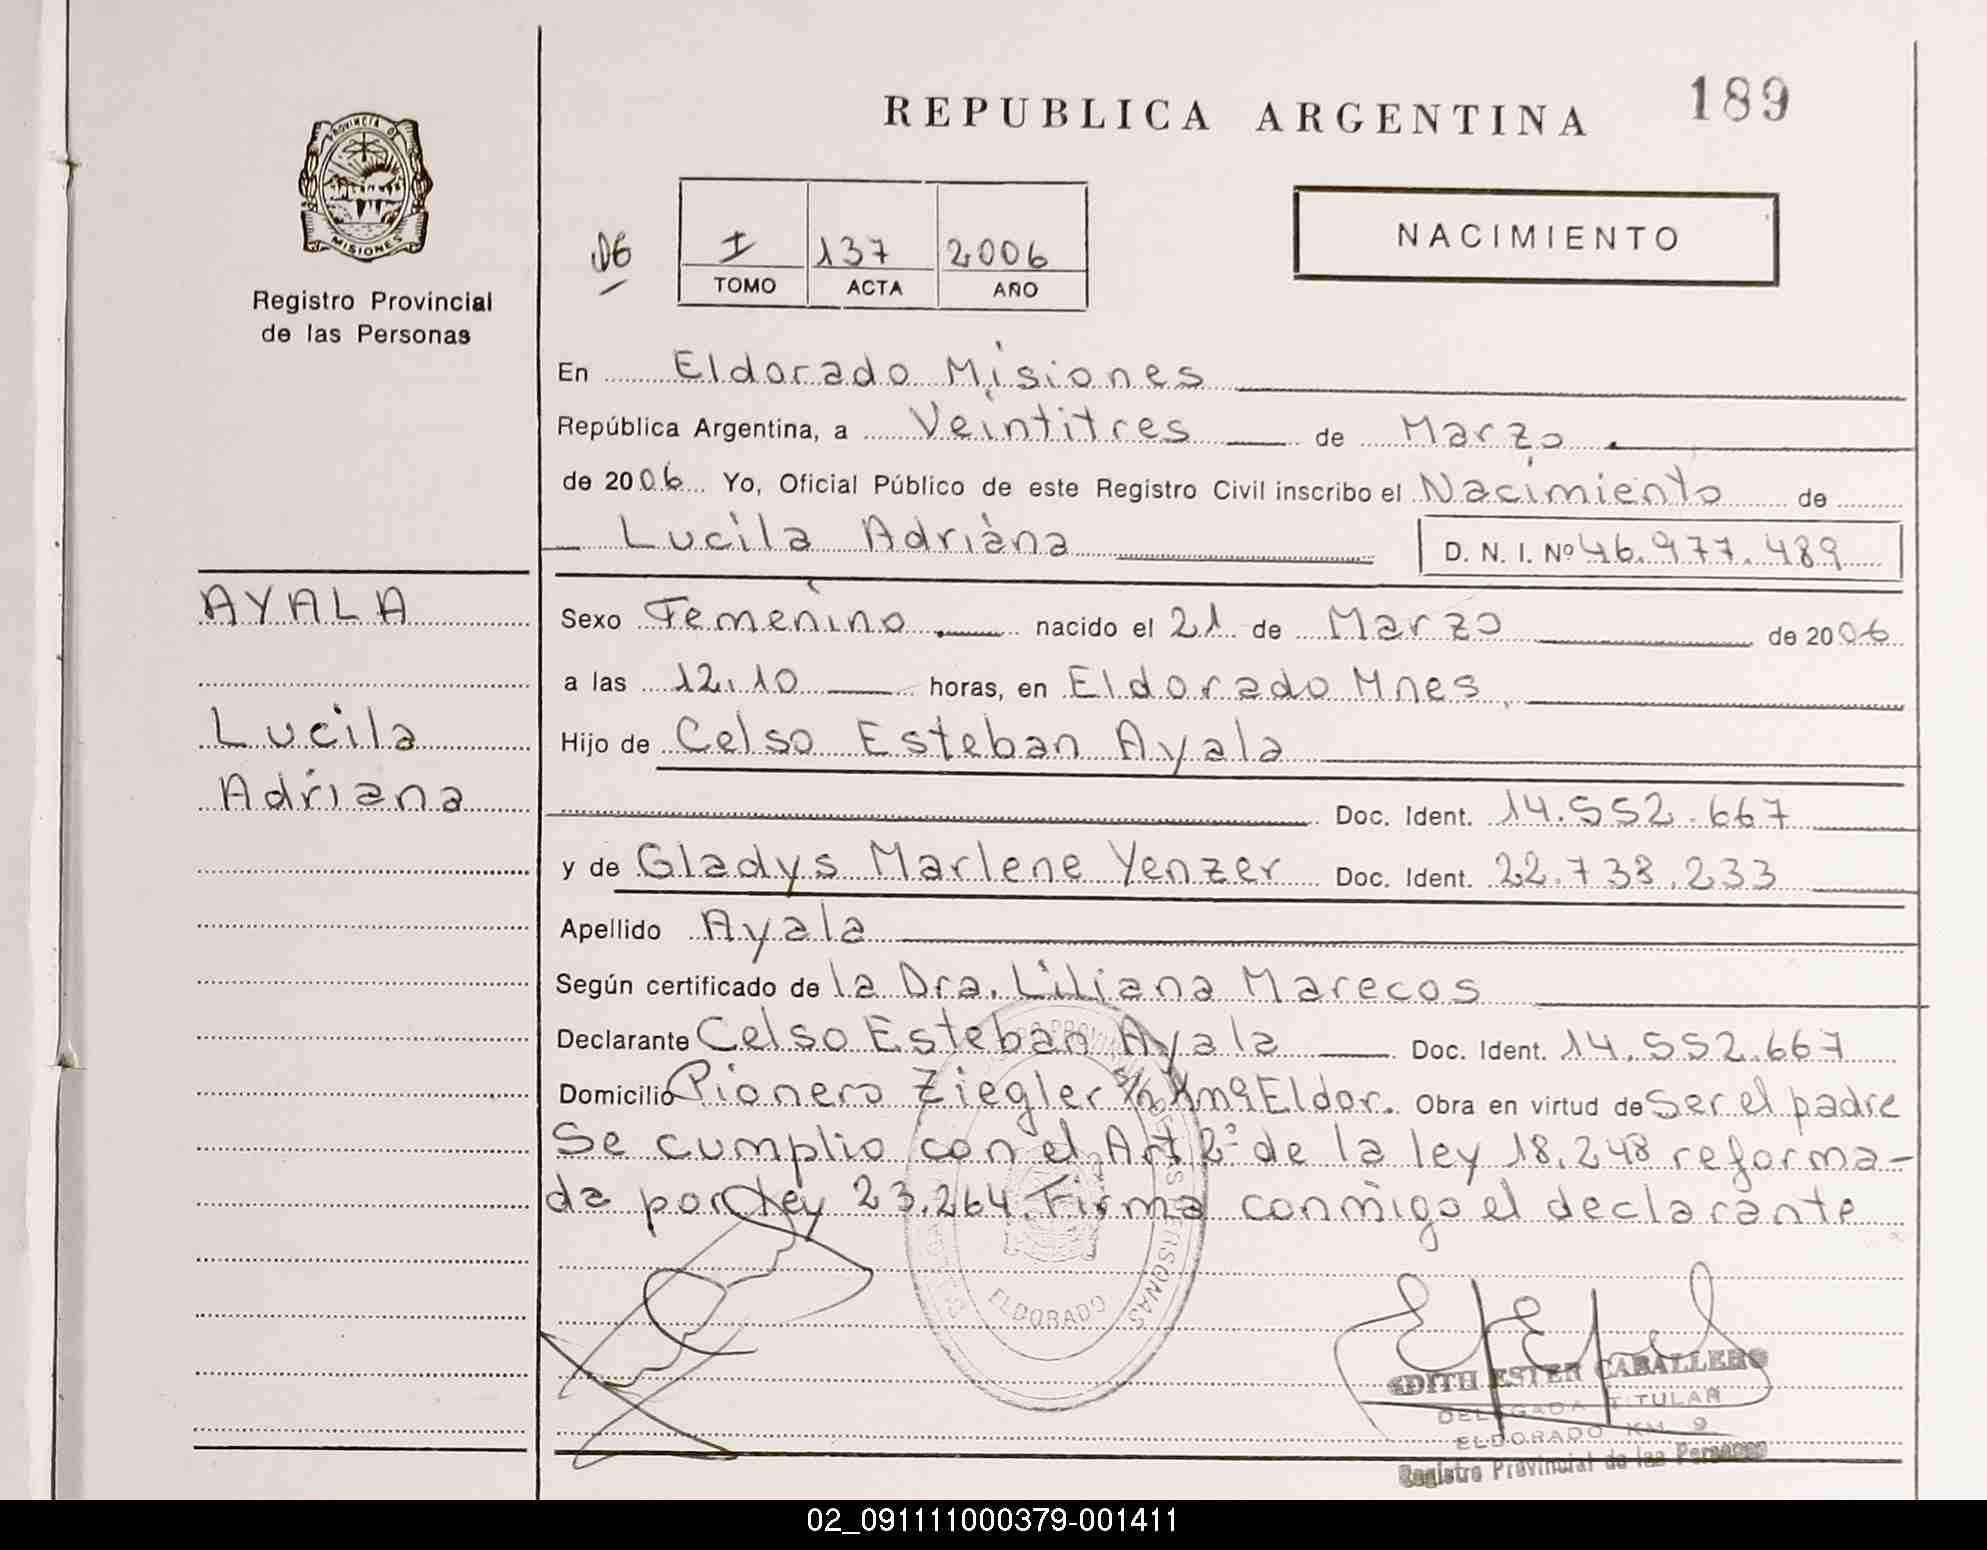 REPUBLICA ARGENTINA
189
PROVINCIA DE
MISIONES
Registro Provincial
de las Personas
I 137 2006
TOMO ACTA AÑO
NACIMIENTO
En Eldorado Misiones
República Argentina, a Veintitres de Marzo
de 2006 Yo, Oficial Público de este Registro Civil inscribo el Nacimiento de
Lucila Adriana D. N. I. Nº 46.977.489
AYALA
Lucila
Adriana
Sexo Femenino nacido el 21 de Marzo de 2006
a las 12.10 horas, en Eldorado Mnes
Hijo de Celso Esteban Ayala
Doc. Ident. 14.552.667
y de Gladys Marlene Yenzer Doc. Ident. 22.738.233
Apellido Ayala
Según certificado de la Dra. Liliana Marecos
Declarante Celso Esteban Ayala Doc. Ident. 14.552.667
Domicilio Pionero Ziegler s/n Km 9 Eldor. Obra en virtud de Ser el padre
Se cumplio con el Art 2º de la ley 18.248 reforma-
da por Ley 23.264. Firma conmigo el declarante
ELDORADO
EDITH ESTER CABALLERO
DELEGADA TITULAR
ELDORADO KM 9
Registro Provincial de las Personas
02_091111000379-001411